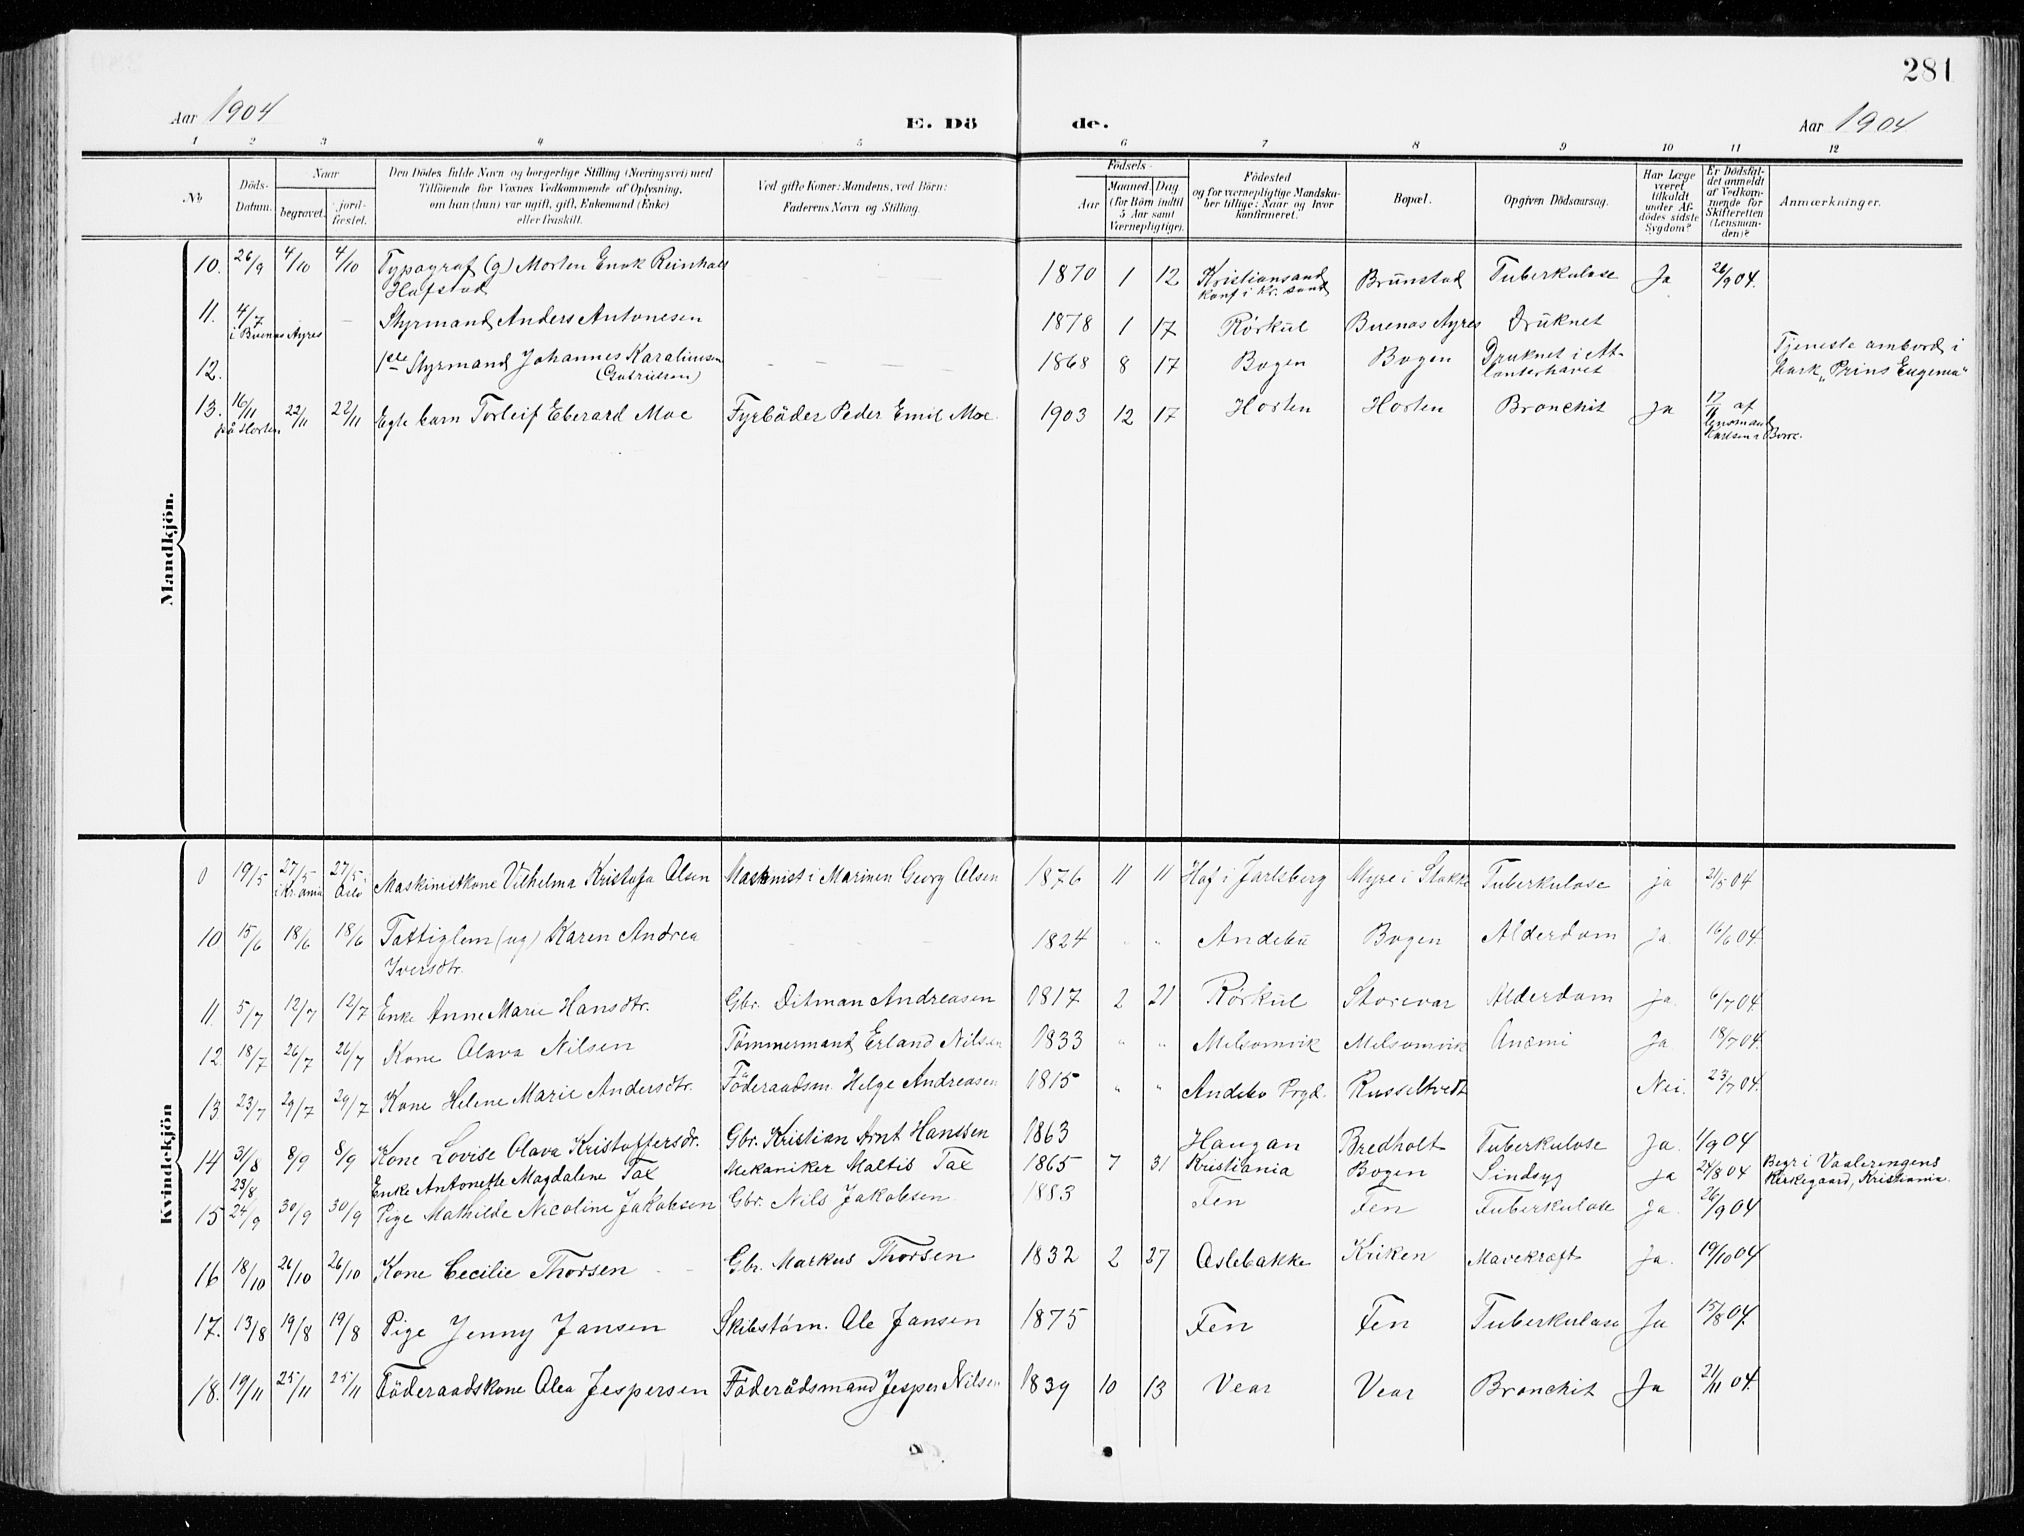 281
Aar 1904
E. Döde.
Aar 1904
1 2 3 4 5 6 7 8 9 10 11 12
No
Döds-Datum.
Naar
begravet.
jordfæstet.
Den Dödes fulde Navn og borgerlige Stilling (Næringsvei) med
Tilföiende for Voxnes Vedkommende af Oplysning,
om han (hun) var ugift, gift, Enkemand (Enke)
eller fraskilt.
Ved gifte Koner: Mandens, ved Börn:
Faderens Navn og Stilling.
Födsels-
Aar
Maaned. Dag
(for Börn indtil
5 Aar samt
Værnepligtige).
Födested
og for værnepligtige Mandska-
ber tillige: Naar og hvor
konfirmeret.
Bopæl.
Opgiven Dödsaarsag.
Har Læge
været
tilkaldt
under Af-
dödes sidste
Sygdom?
Er Dödsfal-
det anmeldt
af Vedkom-
mende for
Skifteretten
(Lensman-
den)?
Anmærkninger.
Mandkjön.
10. 26/9 4/10 4/10 Typograf (g) Morten Enok Reinhold 1870 1 12 Kristiansand Brunstad Tuberkulose Ja 26/9 04.
Hafstad konf i Kr. sand
11. 4/7 Styrmand Anders Antonesen 1878 1 17 Rörkul Buenos Ayres Druknet
i Buenos Ayres
12. 1ste Styrmand Johannes Karaliusen 1868 8 17 Bogen Bogen Druknet i At- Tjeneste ombord i
(Gabrielsen) lanterhavet Bark „Prins Eugenia"
13. 16/11 22/11 22/11 Egte barn Torleif Eberard Moe Fyrböder Peder Emil Moe. 1903 12 17 Horten Horten Bronchit Ja 17/11 af
på Horten lensmand
Karlsen i Borre.
Kvindekjön
9 19/5 27/5 27/5 Maskinistkone Vilhelma Kristofa Olsen Maskinist i Marinen Georg Olsen 1876 11 11 Hof i Jarlsberg Myre i Stokke Tuberkulose ja 21/5 04
i Kr.ania Oslo
10 15/6 18/6 18/6 Fattiglem (ug) Karen Andrea 1824 " " Andebu Bogen Alderdom ja. 16/6 04.
Iversdtr.
11. 5/7 12/7 12/7 Enke Anne Marie Hansdtr. Gbr. Ditman Andreasen 1817 2 21 Rörkul Storevar Alderdom ja. 6/7 04.
12 18/7 26/7 26/7 Kone Olava Nilsen Tömmermand Erland Nilsen 1833 " " Melsomvik Melsomvik Anæmi Ja. 18/7 04.
13 23/7 29/7 29/7 Kone Helene Marie Andersdtr. Föderaadsm. Helge Andreasen 1815 " " Andebo Prgd. Russeltvedt Nei. 23/7 04.
14 31/8 8/9 8/9 Kone Lovise Olava Kristoffersdr. Gbr. Kristian Arnt Hanssen 1863 Haugan Bredholt Tuberkulose Ja. 1/9 04
23/8 Enke Antonette Magdalene Tax Mekaniker Maltis Tax 1865 7 31 Kristiania Bogen Sindsyg ja 24/8 04 Begr i Vaaleringens
Kirkegaard, Kristiania.
15 24/9 30/9 30/9 Pige Mathilde Nicoline Jakobsen Gbr. Nils Jakobsen 1883 Fen Fen Tuberkulose Ja. 26/9 04
16 18/10 26/10 26/10 Kone Cecilie Thorsen Gbr. Markus Thorsen 1832 2 27 Oslebakke Kriken Mavekræft Ja. 19/10 04
17. 13/8 19/8 19/8 Pige Jenny Jansen Skibstöm. Ole Jansen 1875 Fen Fen Tuberkulose Ja 15/8 04.
18. 19/11 25/11 25/11 Föderaadskone Olea Jespersen Föderådsmand Jesper Nilsen 1839 10 13 Vear Vear Bronchit Ja 21/11 04.